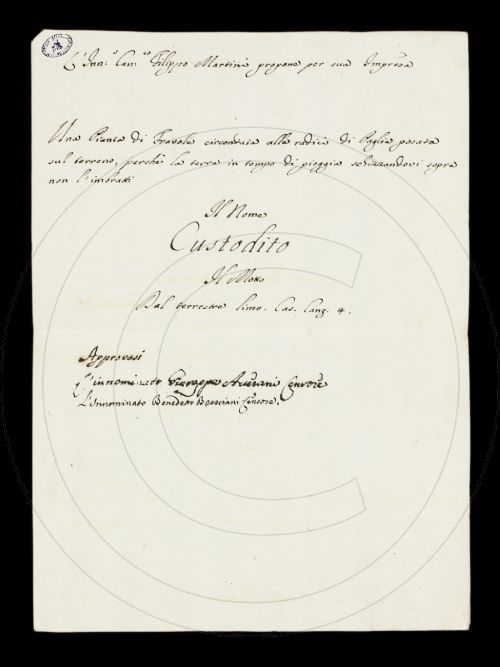 L'Inn.o Can.co Filippo Martini propone per sua Impresa
Una Pianta di Fravole circondata alle radici di Paglia posata
sul terreno, perchè la terra in tempo di pioggia schizzandovi sopra
non l'imbratti
Il Nome
Custodito
Il Motto
Dal terrestre limo. Cas. Canz. 4.
Approvasi
L'innominato Giuseppe Averani Censore
L'Innominato Benedetto Bresciani Censore.